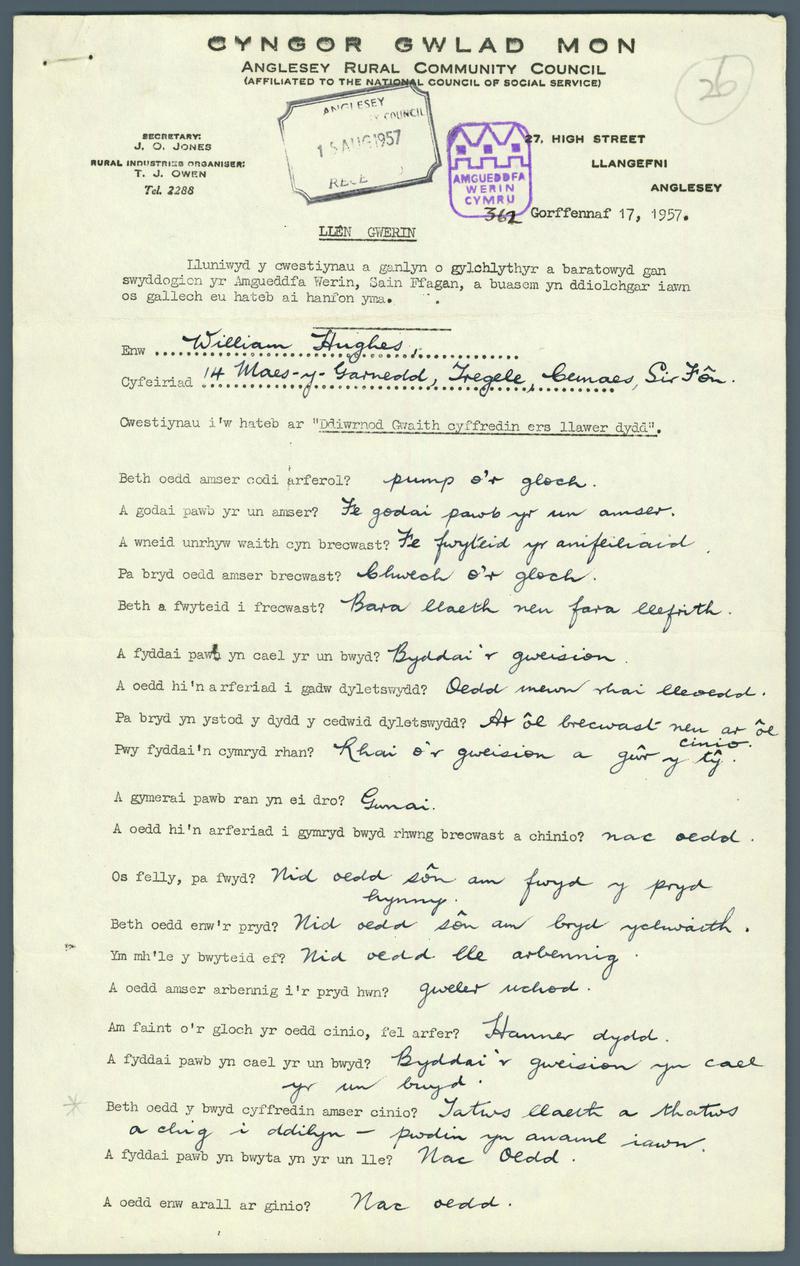 CYNGOR GWLAD MON
ANGLESEY RURAL COMMUNITY COUNCIL
(AFFILIATED TO THE NATIONAL COUNCIL OF SOCIAL SERVICE)
26
ANGLESEY
COUNCIL
15 AUG 1957
RECE
SECRETARY:
J. O. JONES
RURAL INDUSTRIES ORGANISER:
T. J. OWEN
Tel. 2288
AMGUEDDFA
WERIN
CYMRU
362
27, HIGH STREET
LLANGEFNI
ANGLESEY
Gorffennaf 17, 1957.
LLÊN GWERIN
Lluniwyd y cwestiynau a ganlyn o gylchlythyr a baratowyd gan
swyddogion yr Amgueddfa Werin, Sain Ffagan, a buasem yn ddiolchgar iawn
os gallech eu hateb ai hanfon yma.
Enw William Hughes.
Cyfeiriad 14 Maes-y-Garnedd, Tregele, Cemaes, Sir Fôn.
Cwestiynau i'w hateb ar "Ddiwrnod Gwaith cyffredin ers llawer dydd".
Beth oedd amser codi arferol? pump o'r gloch.
A godai pawb yr un amser? Fe godai pawb yr un amser.
A wneid unrhyw waith cyn brecwast? Fe fwyteid yr anifeiliaid.
Pa bryd oedd amser brecwast? Chwech o'r gloch.
Beth a fwyteid i frecwast? Bara llaeth neu fara llefrith.
A fyddai pawb yn cael yr un bwyd? Byddai'r gweision.
A oedd hi'n arferiad i gadw dyletswydd? Oedd mewn rhai lleoedd.
Pa bryd yn ystod y dydd y cedwid dyletswydd? Ar ôl brecwast neu ar ôl
cinio.
Pwy fyddai'n cymryd rhan? Rhai o'r gweision a gŵr y tŷ.
A gymerai pawb ran yn ei dro? Gwnai.
A oedd hi'n arferiad i gymryd bwyd rhwng brecwast a chinio? nac oedd.
Os felly, pa fwyd? Nid oedd sôn am fwyd y pryd
hynny.
Beth oedd enw'r pryd? Nid oedd sôn am bryd ychwaith.
Ym mh'le y bwyteid ef? Nid oedd lle arbennig.
A oedd amser arbennig i'r pryd hwn? gweler uchod.
Am faint o'r gloch yr oedd cinio, fel arfer? Hanner dydd.
A fyddai pawb yn cael yr un bwyd? Byddai'r gweision yn cael
yr un bwyd.
Beth oedd y bwyd cyffredin amser cinio? Tatws llaeth a thatws
a chig i ddilyn - pwdin yn anaml iawn.
A fyddai pawb yn bwyta yn yr un lle? Nac Oedd.
A oedd enw arall ar ginio? Nac oedd.